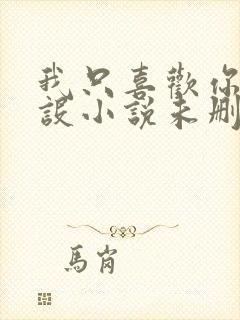 我只喜歡你
設小說未刪
馬崗